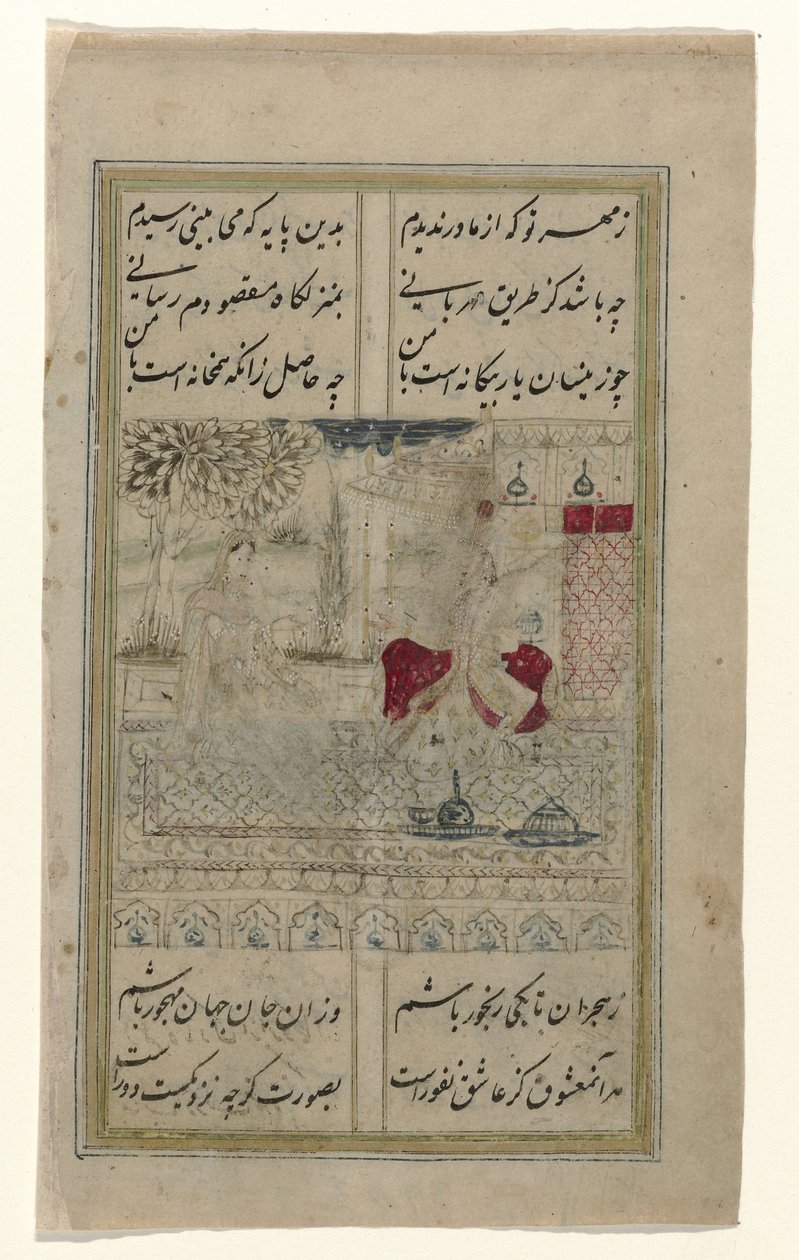 زمهر تو که از مادر ندیدم بدین پایه که می بینی رسیدم
چه باشد کز طریق مهربانی بمنزلکاه مقصودم رسانی
چو زینسان یار بیکانه است با من چه حاصل زانکه همخانه است با من
زهجران تا بکی رنجور باشم وزان جان جهان مهجور باشم
هر آنمعشوق کز عاشق نفور است بصورت کرچه نزدیکست دور است